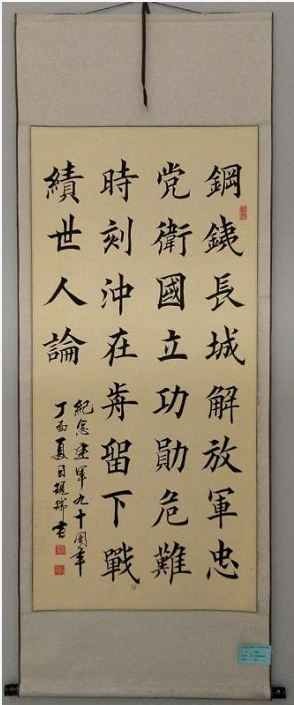 鋼銕長城解放軍忠
党衛國立功勛危難
時刻沖在歬留下戰
績世人論
紀念建軍九十周年
丁酉夏日瑞書